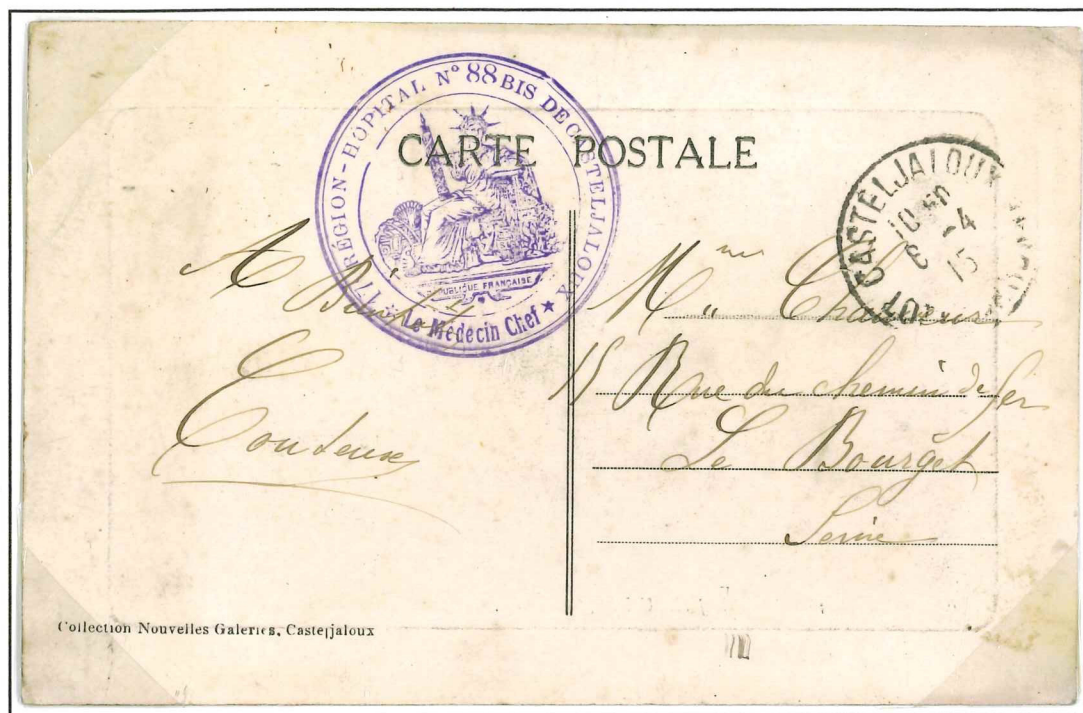 17e RÉGION - HÔPITAL N° 88 BIS DE CASTELJALOUX
RÉPUBLIQUE FRANÇAISE
★ Le Médecin Chef ★
CARTE POSTALE
CASTELJALOUX
6 - 4
15
A Bientôt
M
15 Rue du chemin de fer
Le Bourget
Seine
Collection Nouvelles Galeries, Casteljaloux